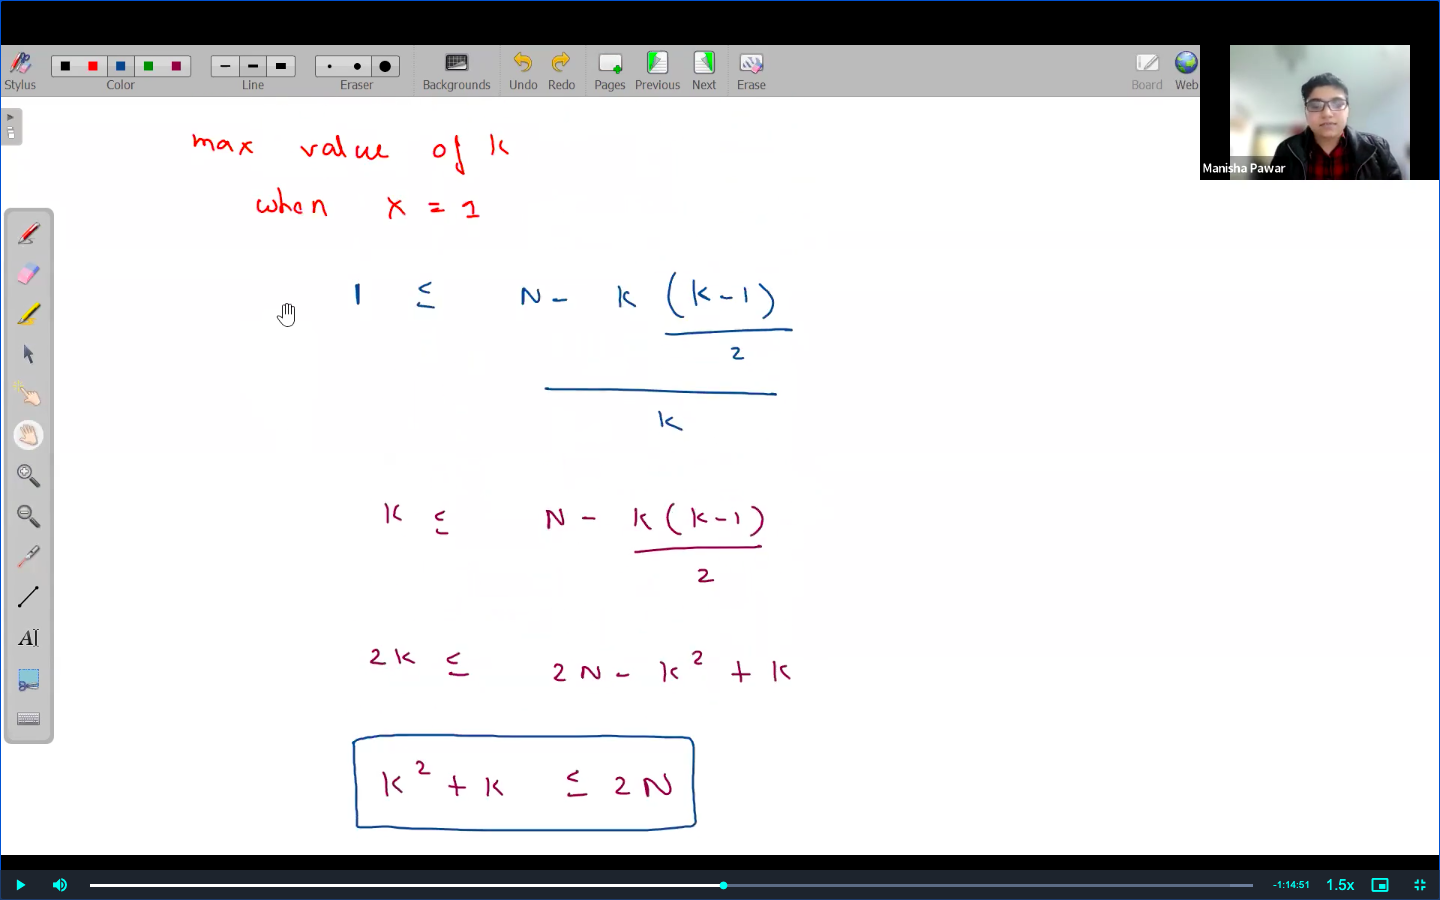 Stylus
Color
Line
Eraser
Backgrounds
Undo
Redo
Pages
Previous
Next
Erase
Board
Web
Manisha Pawar
max value of k
when x = 1
1 ≤ N - k (k-1)
2
k
k ≤ N - k(k-1)
2
2k ≤ 2N - k² + k
k² + k ≤ 2N
AI
-1:14:51
1.5x